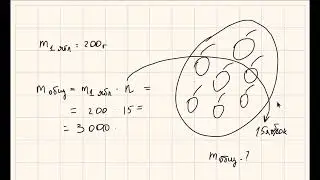 m₁ ябл = 200г
m общ = m₁ ябл · n =
= 200 15 =
= 3000
15 яблок
m общ - ?